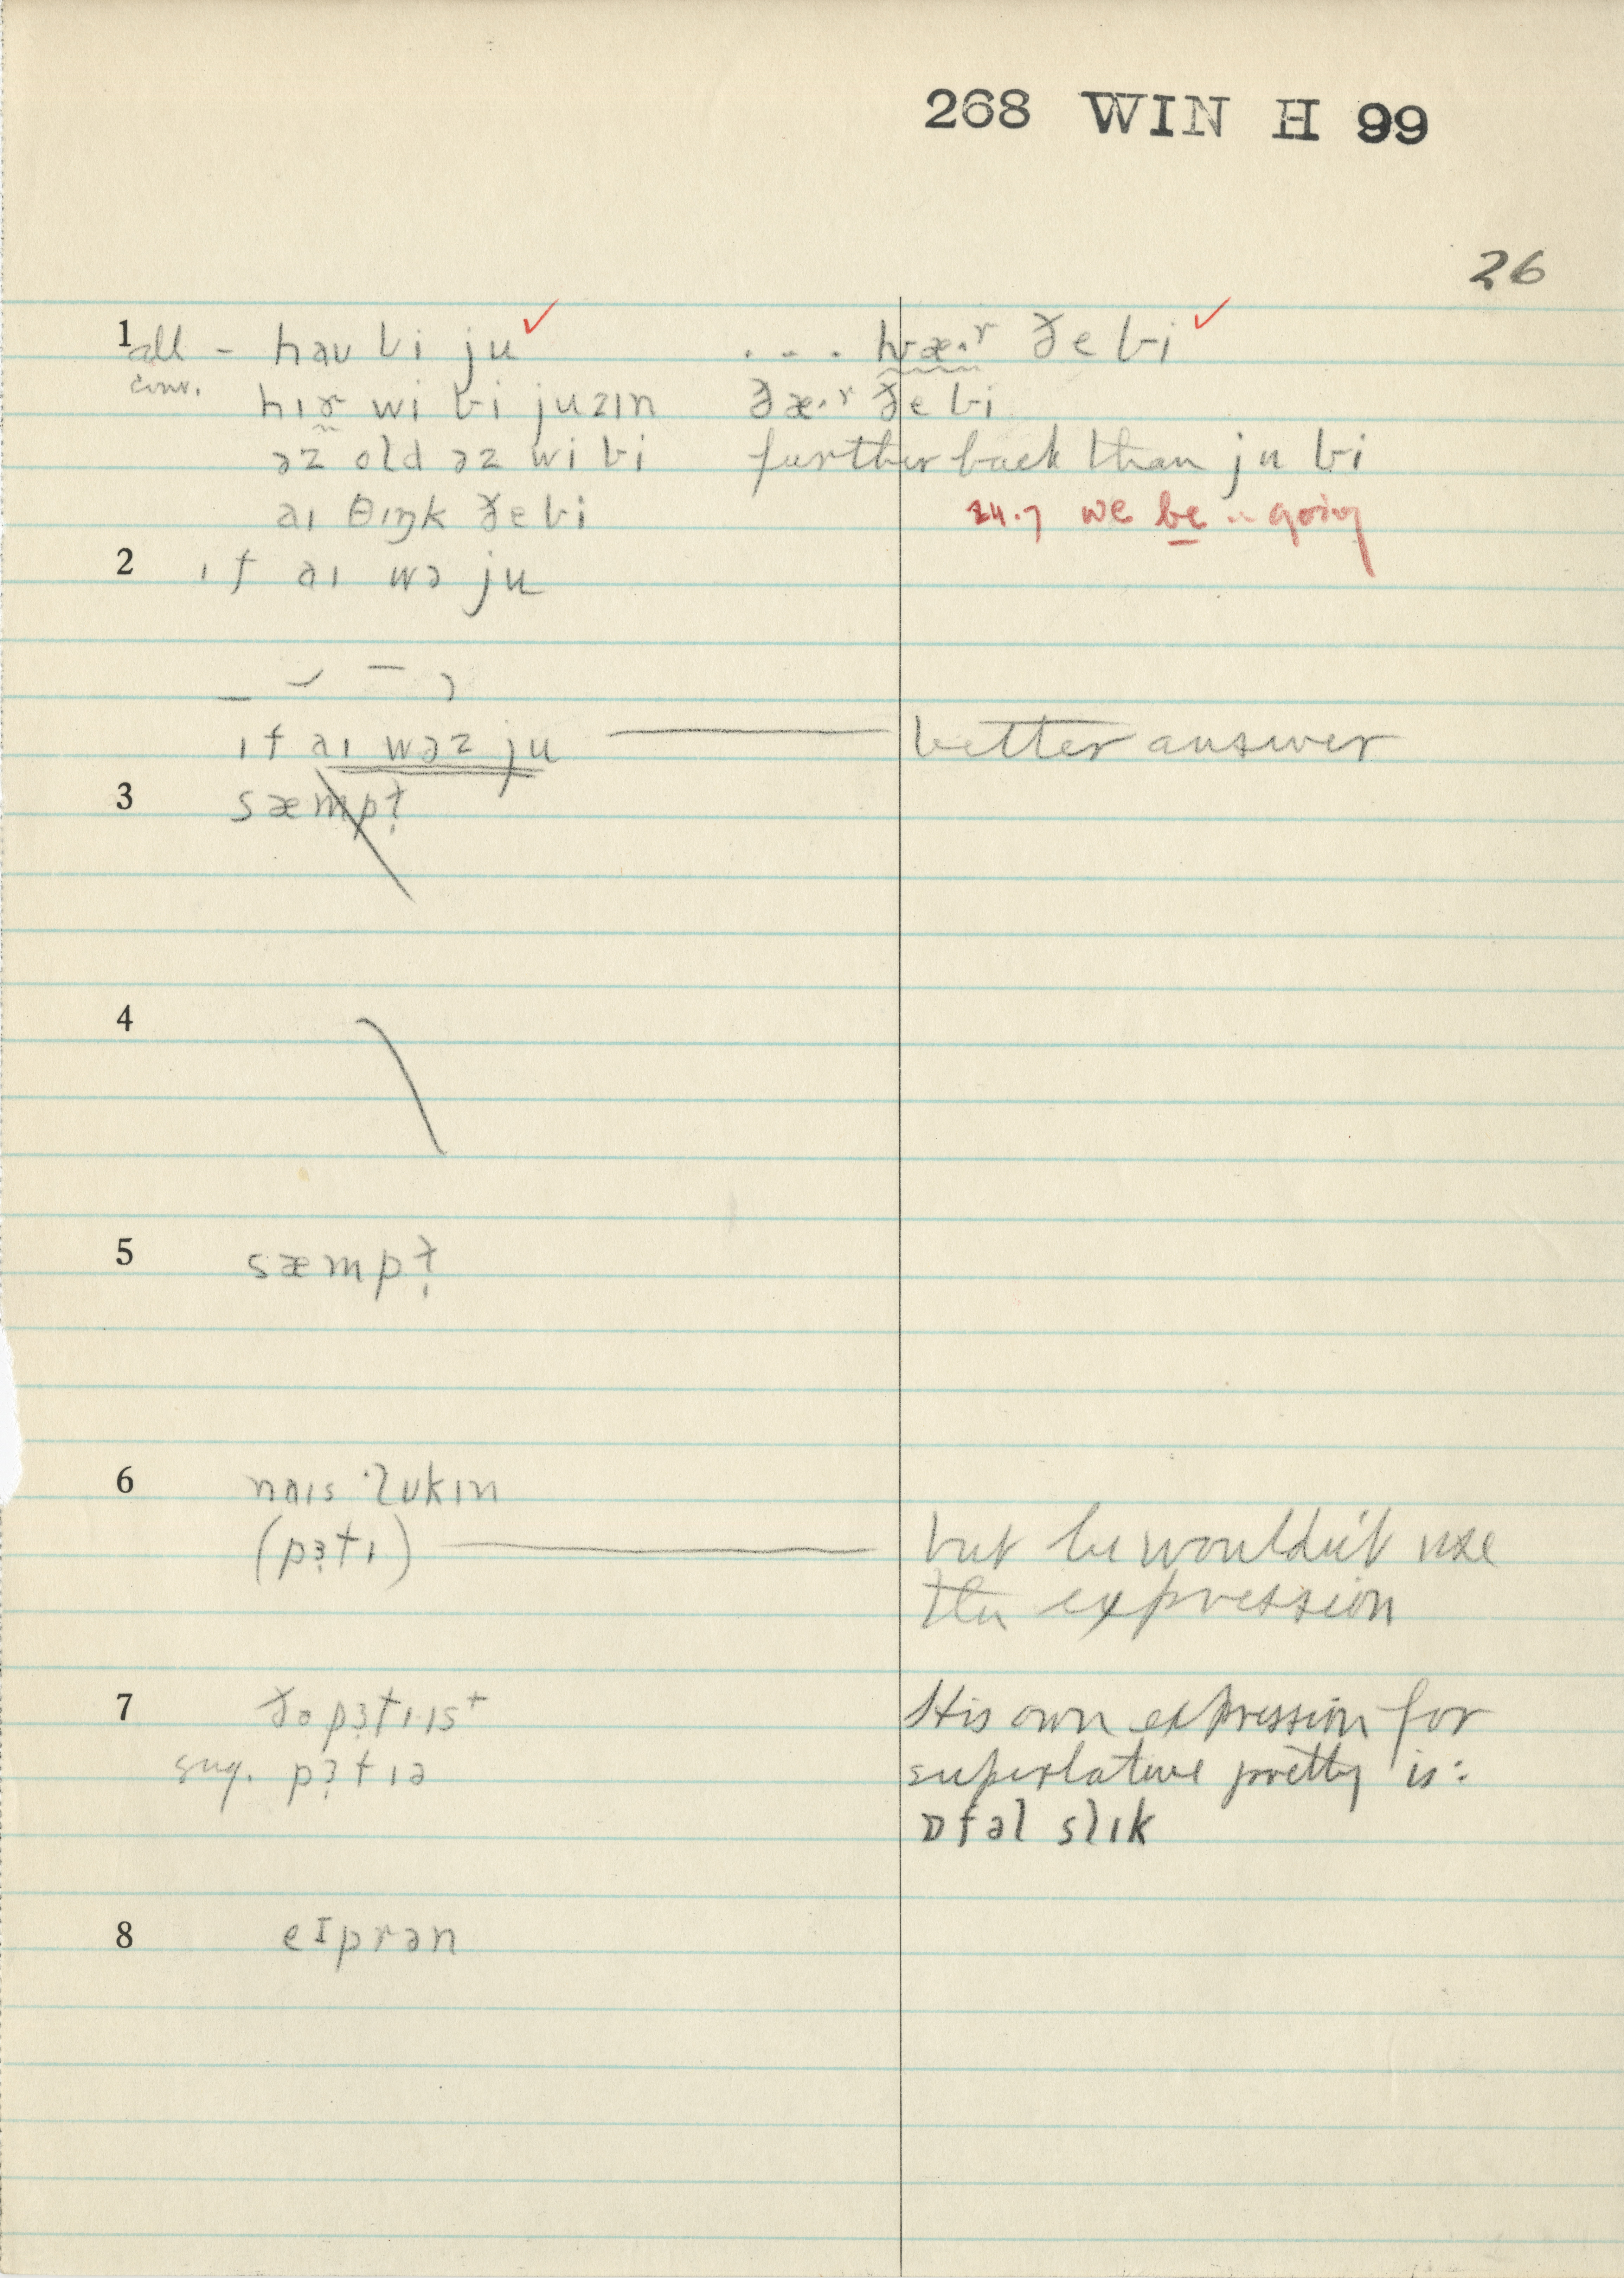 268 WIN H 99
26
1 all - haʊ bi ju ✓ . - - . hwæ·r ðe bi ✓
conv.
hɪr wi bi juzɪn ðæ·r ðe bi
əz old əz wi bi further back than ju bi
aɪ θɪŋk ðe bi 24.7 we be .. going
2 ɪf aɪ wə ju
ɪf aɪ wəz ju ——— better answer
3 sæmpɫ
4
5 sæmpɫ
6 naɪs ˈlʊkɪn
(pɜtɪ) ——— but he wouldn't use
the expression
7 ðə pɜtɪ·ɪst His own expression for
sug. pɜtɪə superlative pretty is:
ɒfəl slɪk
8 eɪprən